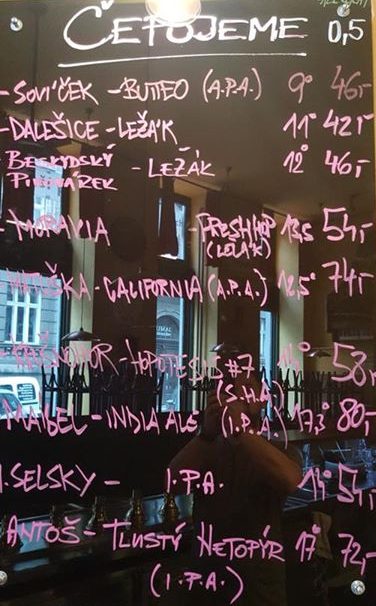 ČEPUJEME 0,5
- SOVÍČEK - BUTEO (A.P.A.) 9° 46,-
- DALEŠICE - LEŽÁK 11° 42,-
- BESKYDSKÝ PIVOVÁREK - LEŽÁK 12° 46,-
- MORAVIA - FRESH HOP (LEŽÁK) 13,5 54,-
MATUŠKA - CALIFORNIA (A.P.A.) 12,5° 74,-
- HOPOTESIS #7 (S.H.A.) 58,-
MAZEL - INDIA ALE (I.P.A.) 17,3° 80,-
SELSKY - I.P.A. 14° 54,-
ANTOŠ - TLUSTÝ NETOPÝR 17° 72,-
(I.P.A.)